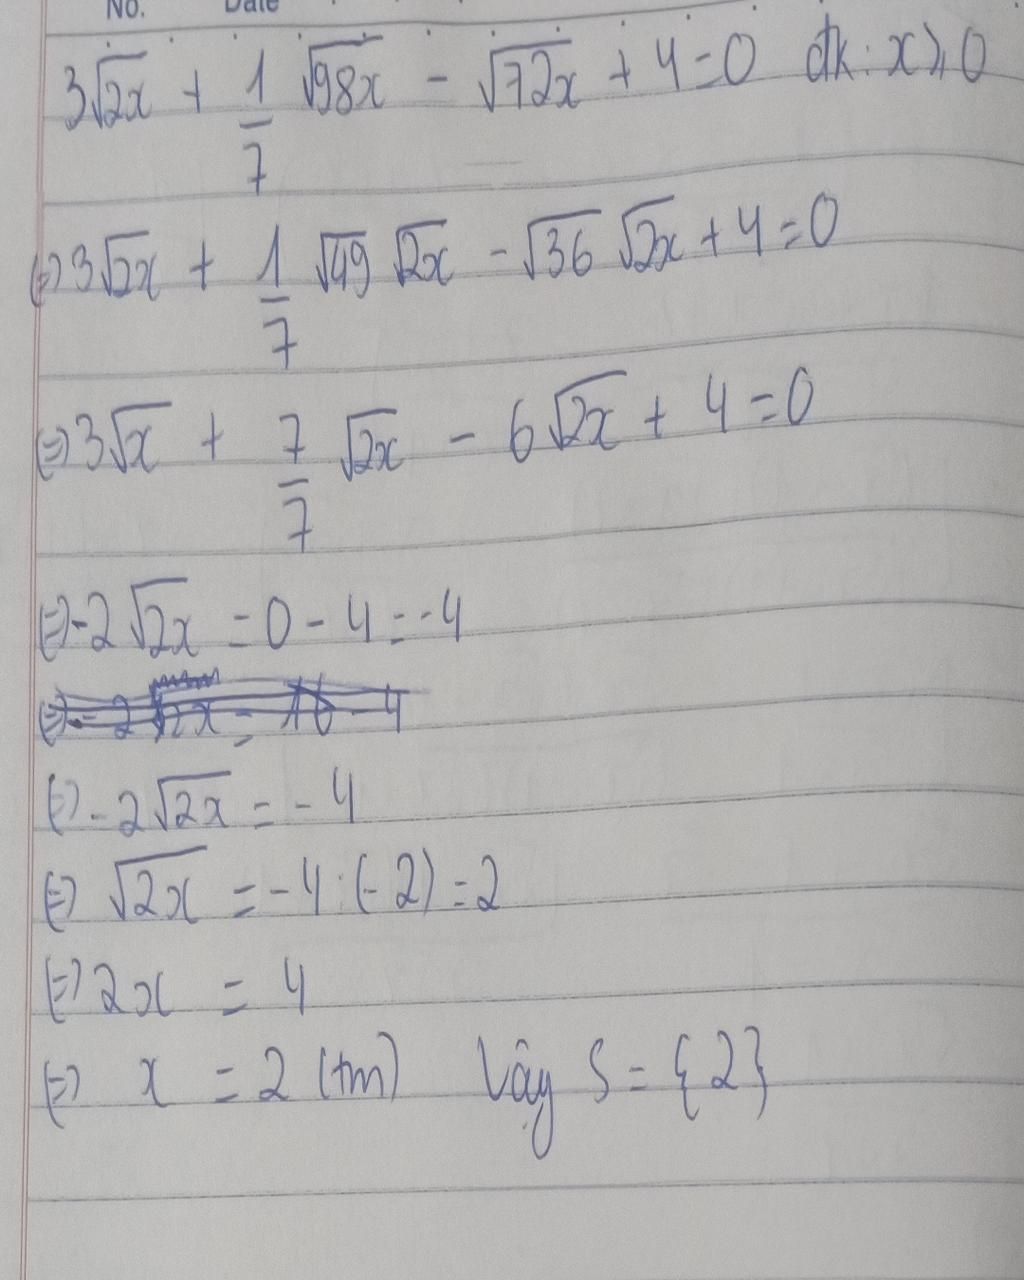 No. Date
3√2x + 1/7 √98x - √72x + 4 = 0 đk: x ⩾ 0
(=) 3√2x + 1/7 √49 √2x - √36 √2x + 4 = 0
(=) 3√x + 7/7 √2x - 6√2x + 4 = 0
(=) -2√2x = 0 - 4 = -4
(=) -2√2x = -4
(=) √2x = -4 : (-2) = 2
(=) 2x = 4
(=) x = 2 (tm) Vây S = {2}